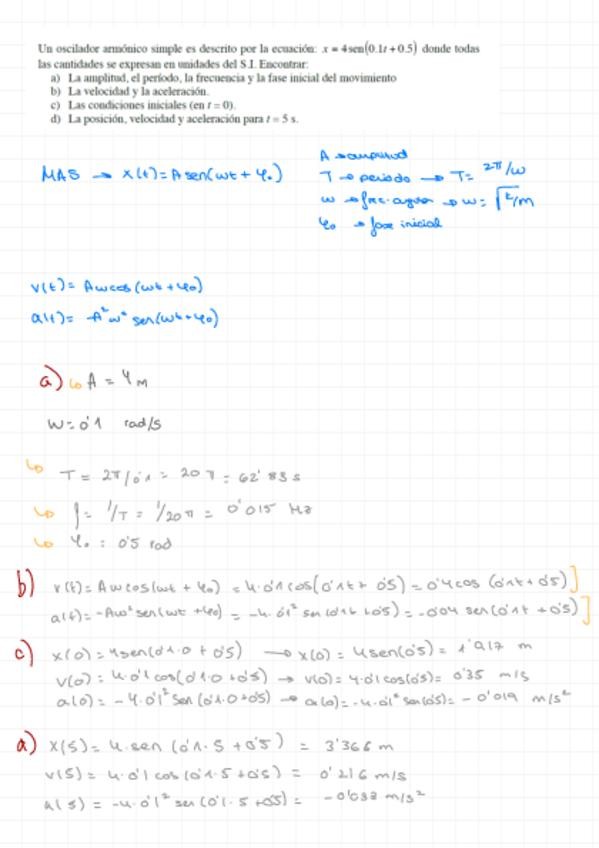 Un oscilador armónico simple es descrito por la ecuación: x = 4sen(0.1t + 0.5) donde todas
las cantidades se expresan en unidades del S.I. Encontrar:
a) La amplitud, el período, la frecuencia y la fase inicial del movimiento
b) La velocidad y la aceleración.
c) Las condiciones iniciales (en t = 0).
d) La posición, velocidad y aceleración para t = 5 s.
MAS → x(t) = A sen(ωt + φ₀)
A → amplitud
T → periodo → T = 2π/ω
ω → frec. angular → ω = √k/m
φ₀ → fase inicial
v(t) = Aωcos(ωt + φ₀)
a(t) = -A²ω² sen(ωt + φ₀)
a) ↳ A = 4 m
ω = 0'1 rad/s
↳ T = 2π/0'1 = 20π = 62'83 s
↳ f = 1/T = 1/20π = 0'015 Hz
↳ φ₀ = 0'5 rad
b) v(t) = Aωcos(ωt + φ₀) = 4·0'1cos(0'1t + 0'5) = 0'4cos(0'1t + 0'5)]
a(t) = -Aω² sen(ωt + φ₀) = -4·0'1² sen(0'1t + 0'5) = -0'04 sen(0'1t + 0'5)]
c) x(0) = 4sen(0'1·0 + 0'5) → x(0) = 4sen(0'5) = 1'917 m
v(0) = 4·0'1cos(0'1·0 + 0'5) → v(0) = 4·0'1cos(0'5) = 0'35 m/s
a(0) = -4·0'1² sen(0'1·0 + 0'5) → a(0) = -4·0'1² sen(0'5) = -0'019 m/s²
d) x(5) = 4·sen(0'1·5 + 0'5) = 3'366 m
v(5) = 4·0'1cos(0'1·5 + 0'5) = 0'216 m/s
a(5) = -4·0'1² sen(0'1·5 + 0'5) = -0'032 m/s²